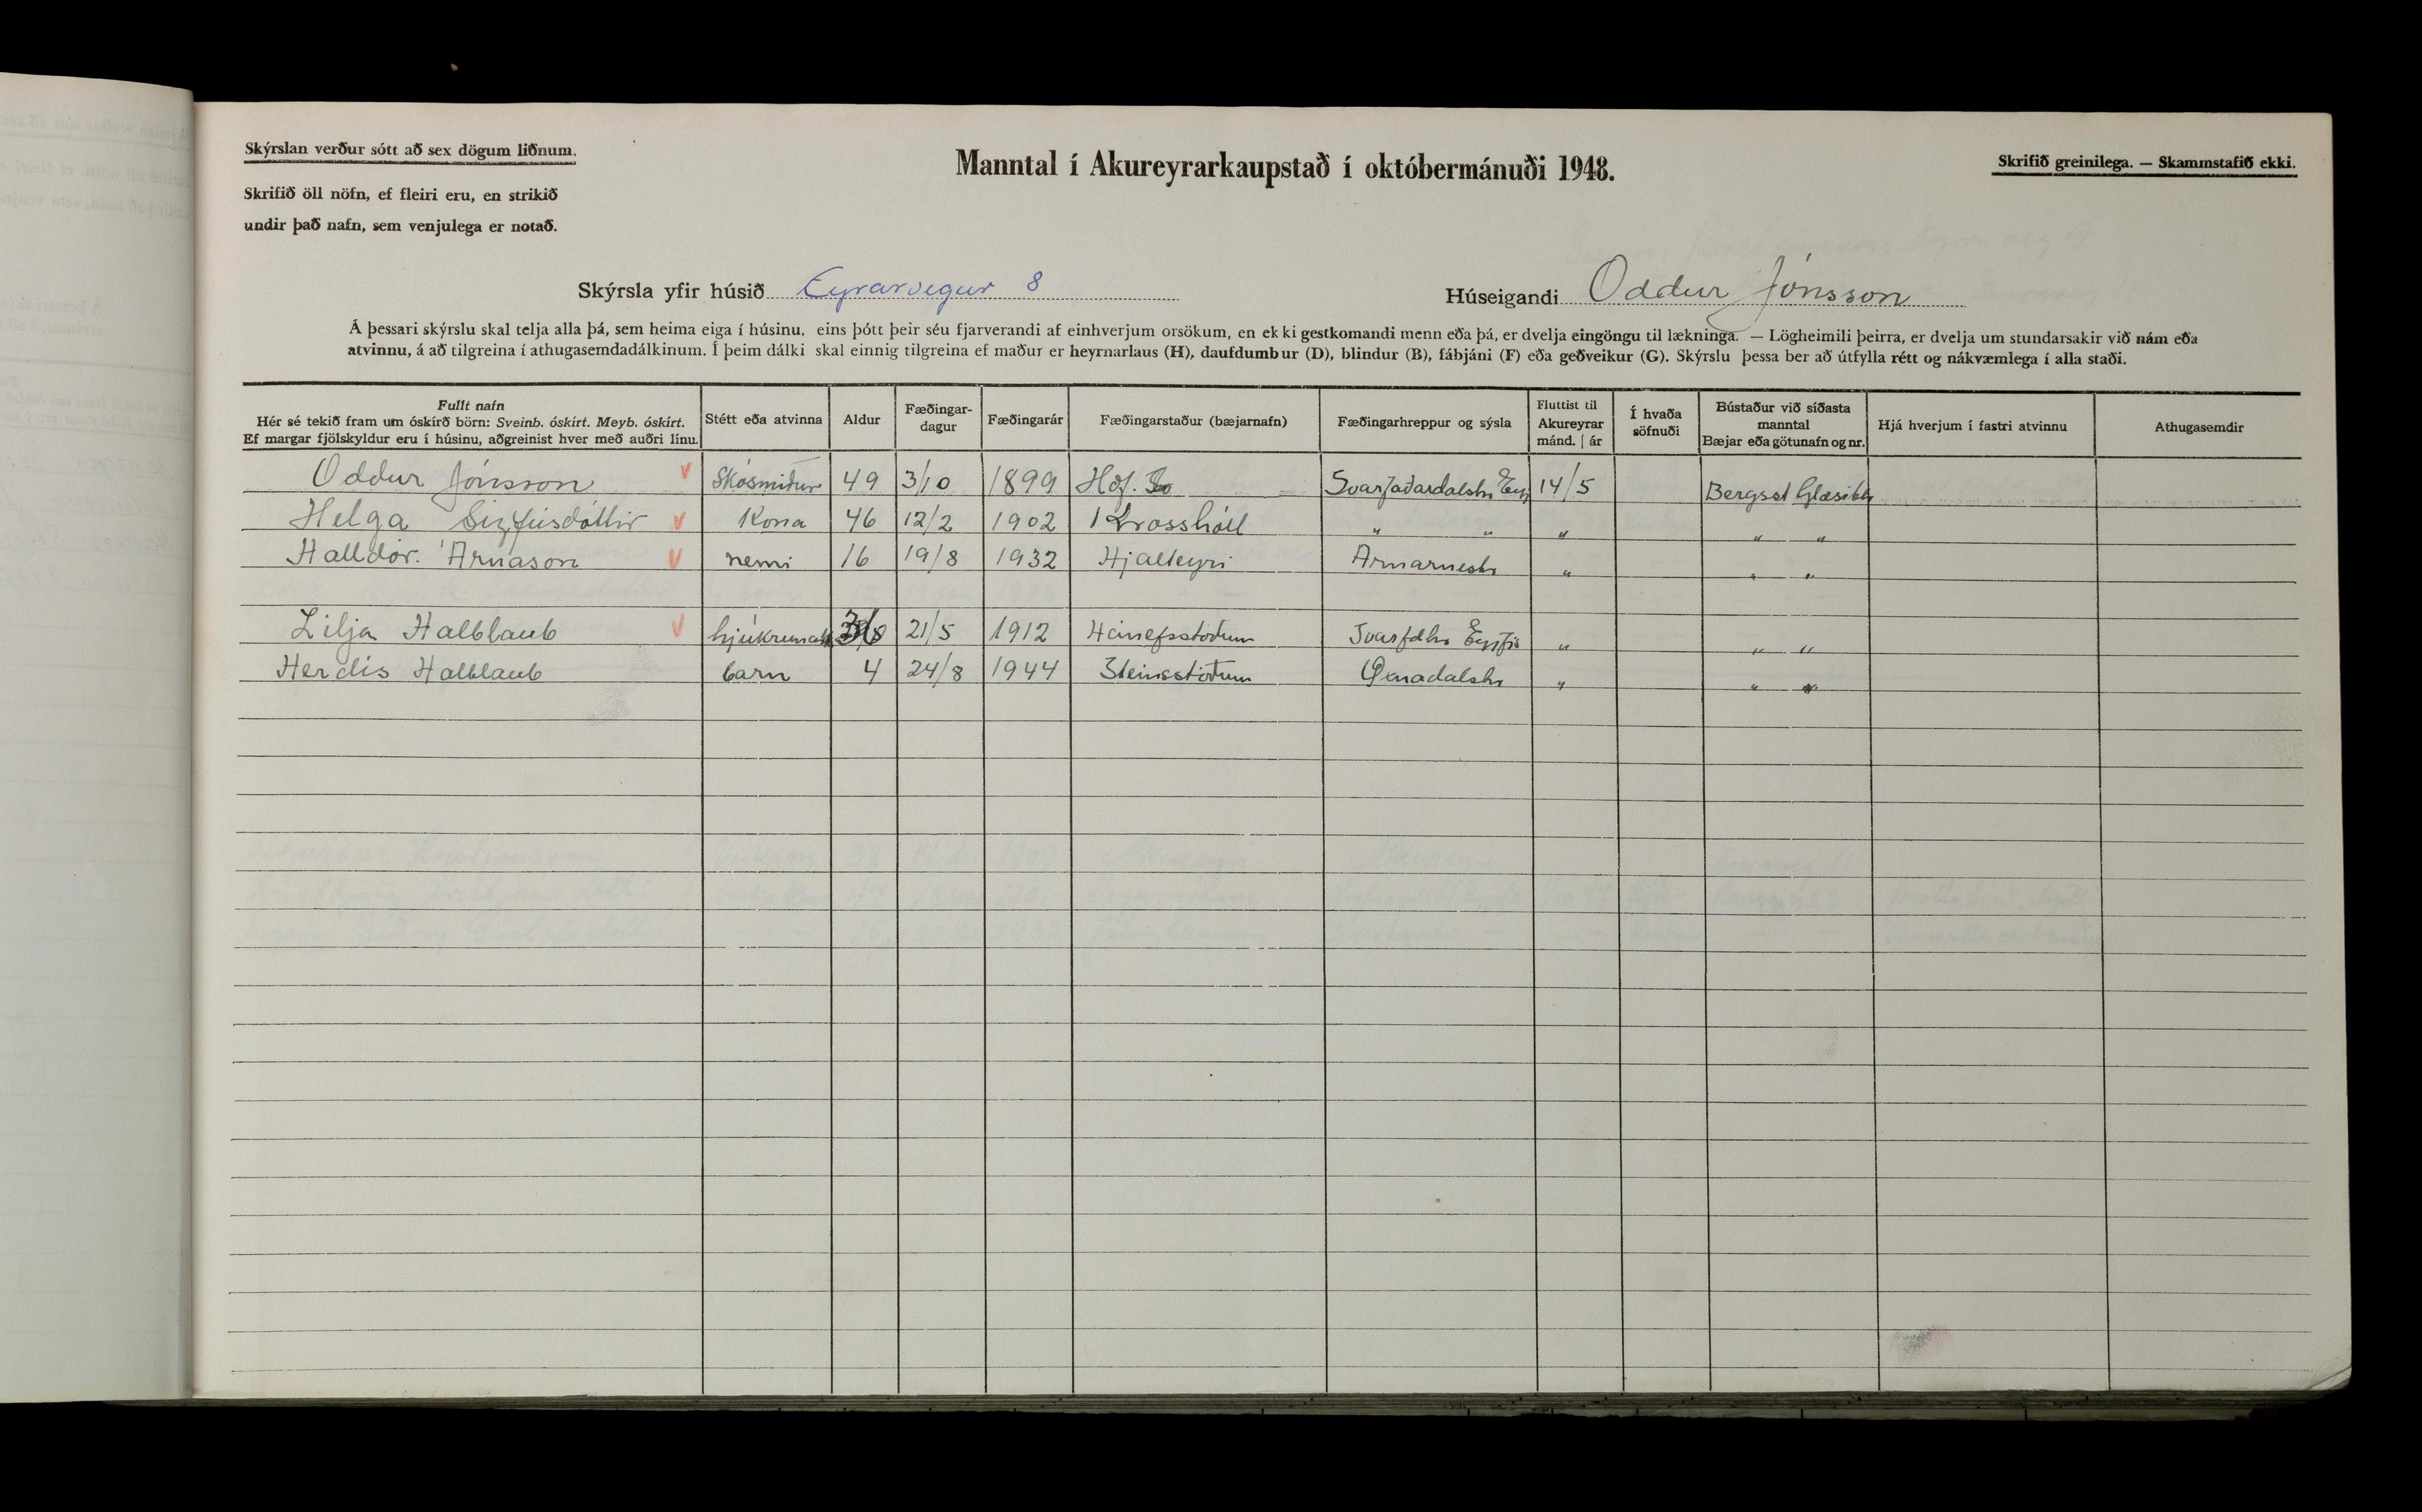 Skýrslan verður sótt að sex dögum liðnum.
Manntal í Akureyrarkaupstað í októbermánuði 1948.
Skrifið greinilega. — Skammstafið ekki.
Skrifið öll nöfn, ef fleiri eru, en strikið
undir það nafn, sem venjulega er notað.
Skýrsla yfir húsið Eyrarvegur 8 Húseigandi Oddur Jónsson
Á þessari skýrslu skal telja alla þá, sem heima eiga í húsinu, eins þótt þeir séu fjarverandi af einhverjum orsökum, en ekki gestkomandi menn eða þá, er dvelja eingöngu til lækninga. — Lögheimili þeirra, er dvelja um stundarsakir við nám eða
atvinnu, á að tilgreina í athugasemdadálkinum. Í þeim dálki skal einnig tilgreina ef maður er heyrnarlaus (H), daufdumbur (D), blindur (B), fábjáni (F) eða geðveikur (G). Skýrslu þessa ber að útfylla rétt og nákvæmlega í alla staði.
Fullt nafn
Hér sé tekið fram um óskírð börn: Sveinb. óskírt. Meyb. óskírt.
Ef margar fjölskyldur eru í húsinu, aðgreinist hver með auðri línu.
Stétt eða atvinna
Aldur
Fæðingar-
dagur
Fæðingarár
Fæðingarstaður (bæjarnafn)
Fæðingarhreppur og sýsla
Fluttist til
Akureyrar
mánd. | ár
Í hvaða
söfnuði
Bústaður við síðasta
manntal
Bæjar eða götunafn og nr.
Hjá hverjum í fastri atvinnu
Athugasemdir
Oddur Jónsson v Skósmiður 49 3/10 1899 Hof. Svarfaðardalshr Eyj 14/5 Bergsst Glæsibh
Helga Sigfúsdóttir v Kona 46 12/2 1902 Krosshóll " " " " "
Halldór. Árnason v nemi 16 19/8 1932 Hjalteyri Arnarnesh " " "
Lilja Halblaub v 21/5 1912 Hánefsstöðum Svarfdhr Eyjfjs " " "
Herdís Halblaub barn 4 24/8 1944 Steinsstöðum Öxnadalshr " " "